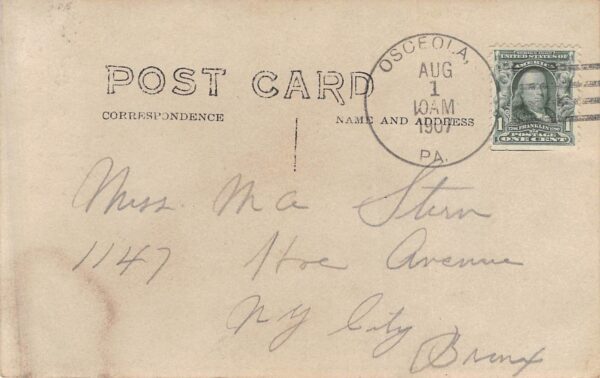 POST CARD
CORRESPONDENCE
NAME AND ADDRESS
OSCEOLA,
AUG
1
10AM
1907
PA.
UNITED STATES OF
AMERICA
1 FRANKLIN 1
POSTAGE
ONE CENT
Miss. M A Stern
1147 Hoe Avenue
NY City
Bronx